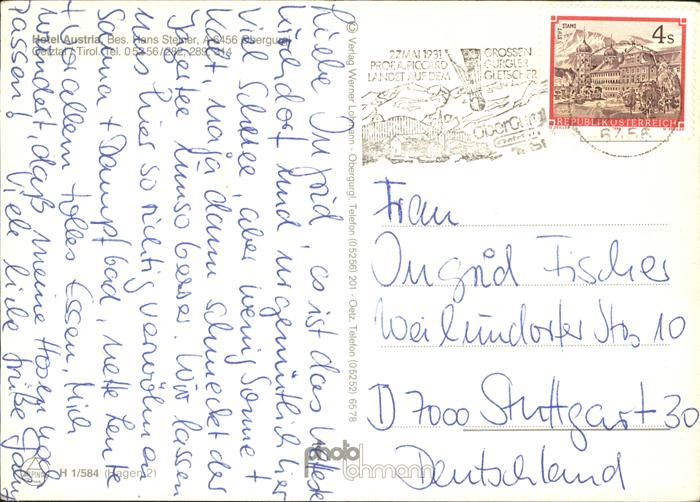 Hotel Austria, Bes. Hans Steiner, A-6456 Obergurgl
Oetztal / Tirol, Tel. 05256/282, 289, 314
Liebe Ingrid, es ist das netteste
und urgemütlich hier
viel Schnee, aber wenig Sonne +
kalt, naja dann schmeckt der
Jagertee umso besser. Wir lassen
uns hier so richtig verwöhnen
Sauna + Dampfbad, nette Leute
+ vor allem tolles Essen, mich
wundert, daß meine Hosen noch
passen!
Viele liebe Grüße
H 1/584 (Hager 2)
© Verlag Werner Lohmann - Obergurgl, Telefon (05256) 201 - Oetz, Telefon (05252) 6578
photo
lohmann
27. MAI 1931
PROF. A. PICCARD
LANDET AUF DEM
GROSSEN
GURGLER
GLETSCHER
obergurgl
STIFT STAMS
4 S
REPUBLIK ÖSTERREICH
6456
Frau
Ingrid Fischer
Weilimdorfer Str. 10
D 7000 Stuttgart 30
Deutschland